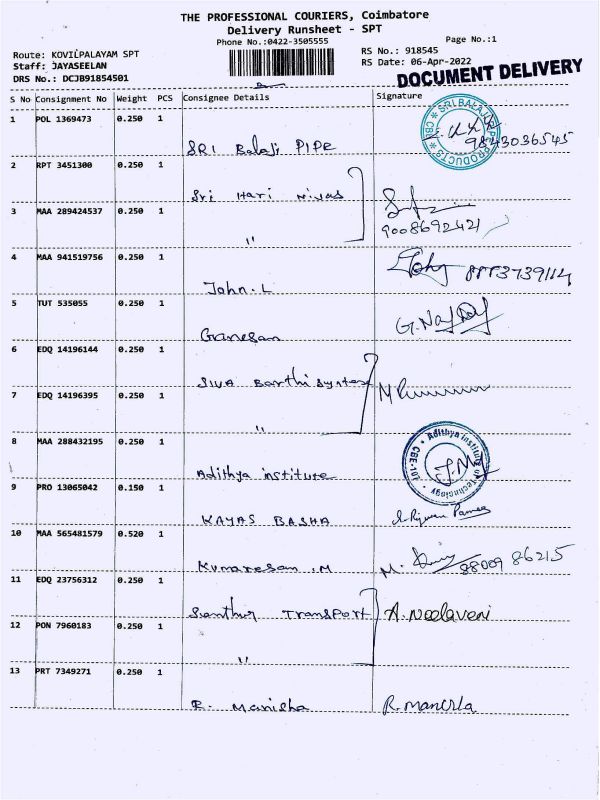 THE PROFESSIONAL COURIERS, Coimbatore
Delivery Runsheet - SPT
Phone No.:0422-3505555
Page No.:1
Route: KOVILPALAYAM SPT
RS No.: 918545
Staff: JAYASEELAN
RS Date: 06-Apr-2022
DRS No.: DCJB91854501
DOCUMENT DELIVERY
S No Consignment No Weight PCS Consignee Details Signature
1 POL 1369473 0.250 1
SRI BALAJI PRODUCTS CBE
9843036545
SRI Balaji PIPE
2 RPT 3451300 0.250 1
Sri Hari Nivas
3 MAA 289424537 0.250 1
9008692421
"
4 MAA 941519756 0.250 1
John
John.L
5 TUT 535055 0.250 1
Ganesan
6 EDQ 14196144 0.250 1
SIVA Barthi System
7 EDQ 14196395 0.250 1
"
8 MAA 288432195 0.250 1
Adithya Institute of Technology
Adithya institute
9 PRO 13065042 0.150 1
KAYAS BASHA
10 MAA 565481579 0.520 1
Kumaresan .M
88009 86215
11 EDQ 23756312 0.250 1
Transport
A. Neelaveni
12 PON 7960183 0.250 1
"
13 PRT 7349271 0.250 1
R. Manisha